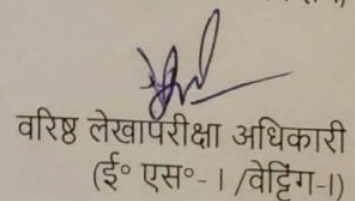 वरिष्ठ लेखापरीक्षा अधिकारी
(ई॰ एस॰- I /वेट्टिंग-I)